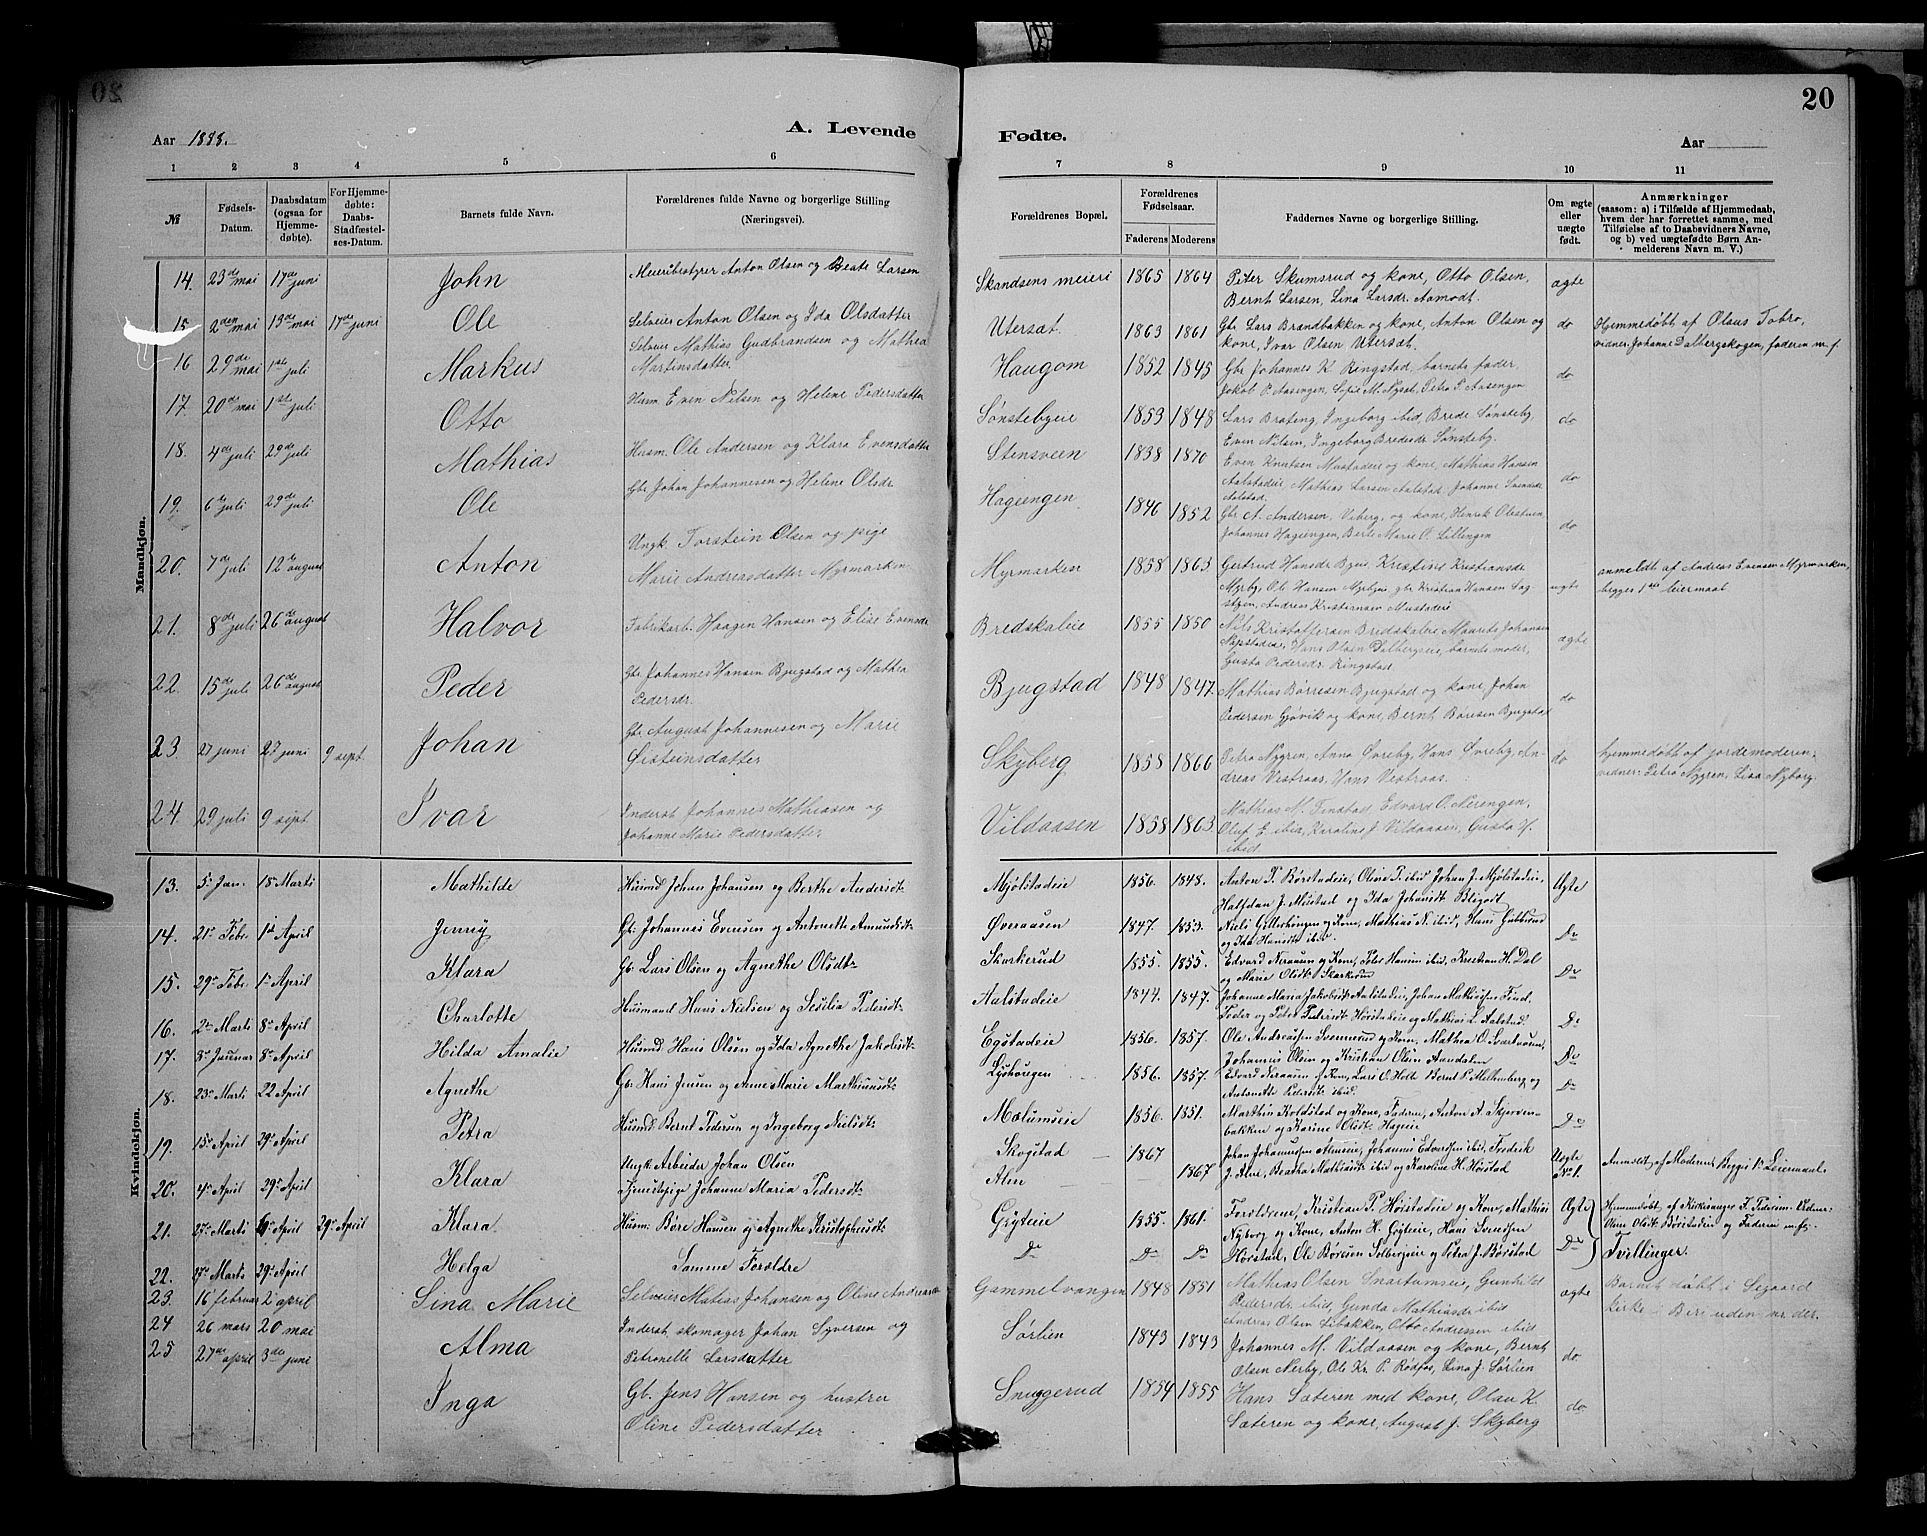 20
Aar 1888.
A. Levende
Fødte.
Aar
1 2 3 4 5 6 7 8 9 10 11
№
Fødsels-Datum.
Daabsdatum (ogsaa for Hjemmedøbte).
For Hjemmedøbte: Daabs-Stadfæstelses-Datum.
Barnets fulde Navn.
Forældrenes fulde Navne og borgerlige Stilling (Næringsvei).
Forældrenes Bopæl.
Forældrenes Fødselsaar.
Faderens Moderens
Faddernes Navne og borgerlige Stilling.
Om ægte eller uægte født.
Anmærkninger (saasom: a) i Tilfælde af Hjemmedaab, hvem der har forrettet samme, med Tilføielse af to Daabsvidners Navne, og b) ved uægtefødte Børn Anmelderens Navn m. V.)
Mandkjøn.
14. 23de mai 17de juni John Meieribestyrer Anton Olsen og Beate Larsen Skandsens meieri 1865 1864 Peter Skumsrud og kone, Otto Olsen, ægte
Bernt Larsen, Lina Larsdr. Aamodt.
15 2den mai 13de mai 17de juni Ole Selveier Anton Olsen og Ida Olsdatter Utersæt. 1863 1861 Gbr Lars Brandbakken og kone, Anton Olsen og do Hjemmedøbt af Olaus Tobro,
kone, Ivar Olsen Utersæt. vidner Johanne Dalbergskogen, faderen m. f.
16 29de mai 1ste juli Markus Selveier Mathias Gudbrandsen og Mathea Haugom 1852 1845 Gbr Johannes K. Ringstad, barnets fader, do
Martinsdatter Jakob P. Aasengen, Sofie M. Nysæt, Petra P. Aasengen
17. 20de mai 1ste juli Otto Husm Even Nilsen og Helene Pedersdatter Sønstebyeie 1853 1848 Lars Brateng, Ingeborg ibid, Brede Sønsteby, do
Even Nilsen, Ingeborg Bredesdr Sønsteby.
18. 4de juli 29de juli Mathias Husm. Ole Andersen og Klara Evensdatter Stensveen 1838 1870 Even Knutsen Mustadeie og kone, Mathias Hansen do
Aalstadeie, Mathias Larsen Aalstad, Johanne
Aalstad.
19. 6te juli 29de juli Ole Gbr Johan Johannesen og Helene Olsdr. Hageengen 1846 1852 Gbr A. Andersen, Viberg, og kone, Henrik Olestuen, do
Johannes Hageengen, Berte Marie O. Lillengen
20. 7de juli 12te august Anton Ungk. Torstein Olsen og pige Myrmarken 1858 1863 Gertrud Hansdr Byeie, Kristine Kristiansdr uægte anmeldt af Andreas Evensen Myrmarken,
Marie Andreasdatter Myrmarken Myrby, Ole Hansen Myrbyeie, gbr Kristian Hansen begges 1ste leiermaal
Andreas Kristiansen Mustadeie
21. 8de juli 26de august Halvor Fabrikarb. Haagen Hansen og Elise Evensdr Bredskaleie 1855 1850 Nils Kristoffersen Bredskaleie, Maurits Johansen ægte
Hans Olsen Dalbergseie, barnets moder,
Gusta Pedersdr. Ringstad.
22. 15de juli 26de august Peder Gbr Johannes Hansen Bjugstad og Mathea Bjugstad 1848 1847. Mathias Børresen Bjugstad og kone, Johan do
Pedersdr. Pedersen Gjøvik og kone, Bernt Børesen Bjugstad
23. 27 juni 27 juni 9 sept. Johan Gbr August Johannesen og Marie Skyberg 1858 1866 Petra Nygren, Anna Øvreby, Hans Øvreby, An- do hjemmedøbt af jordemoderen,
Øisteinsdatter dreas Vestraas, Hans Vestraas. vidner: Petra Nygren, Lina Nyborg.
24. 29 juli 9 sept Ivar Inderst Johannes Mathiasen og Vildaasen 1858 1863. Mathias M. Finstad, Edvard O. Nerengen,
Johanne Marie Pedersdatter Oluf E. ibid, Karoline J. Vildaasen, Gusta H.
ibid.
Kvindekjøn.
13. 5te Jan. 18 Marti Mathilde Husmd Johan Johansen og Berthe Andersdt Mjølstadeie 1856. 1848. Anton P. Børstadeie, Oline P. ibid Johan J. Mjølstadeie, Ægte
Halfdan J. Meistad og Ida Johansdt Bligot
14. 21de Febr. 1ste April Jenny Gb: Johannes Evensen og Antonette Amundsdt Øveraasen 1847. 1853. Niels Gillerhaugen og Kone, Mathias N. ibid, Hans Gubberud Do
og Ida Hansdt ibid.
15. 29de Febr. 1ste April Klara Gb. Lars Olsen og Agnethe Olsdt Skarkerud 1855. 1855. Edvard Neraasen og Kone, Peter Hansen ibid, Kristian H. Dal Do
og Marie Olsdt Skarkerud
16. 2de Marti 8de April Charlotte Husmand Hans Nielsen og Sesilia Pedersdt Aalstadeie 1844. 1847. Johanne Maria Jakobsdt Aalstadeie, Johan Mathiesen Find, Do
Peder og Petra Pedersdt Horstadeie og Mathias L. Aalstad.
17. 8de Januar 8de April Hilda Amalie Husmd Hans Olsen og Ida Agnethe Jakobsdt Egstadeie 1856. 1857. Ole Andreassen Svennerud og Kone, Mathea O. Svartaasen, Do
Johannes Olsen og Kristian Olsen Aandalen
18. 23de Marti 22 April Agnethe Gb. Hans Jensen og Anne Marie Marthinusdt Lyshaugen 1856. 1857. Edvard Neraasen og Kone, Lars O. Holt Bernt P. Mellemberg og Do
Antonette Pedersdt ibid.
19. 15de April 29de April Petra Husmd Bernt Pedersen og Ingeborg Nielsdt Mælumseie 1856. 1851. Marthin Koldstad og Kone, Faderen, Anton A. Skjerven- Do
bakken og Karine Olsdt Hageie
20. 4de April 29de April Klara Ungk. Arbeider Johan Olsen Skogstad 1867 Johan Johannesen Almeie, Johannes Edvardsen ibid, Fredrik Uægte Anmeldt af Moderen, Begges 1ste Leiermaal.
Tjenestepige Johanne Maria Pedersdt Alm 1867 J. Alm, Beatha Mathisdt ibid og Karoline H. Horstad No 1.
21. 27de Marti 6te April 29de April Klara Husm: Børe Hansen og Agnethe Kristophersdt Gryteie 1855. 1861. Forældrene, Kristian P. Horstadeie og Kone, Mathias Ægte Hjemmedøbt af Kirkesanger F. Pedersen. Vidner
Nyborg og Kone, Anton H. Gryteie, Hans Svendsen Oline Olsdt Børstadeie og Faderen m. fl.
22. 27de Marts 29de April Helga Samme Forældre Do Do Do Horstad, Ole Børesen Solbergseie og Petra J. Børstad Do Tvillinger.
23. 16 februar 2 april Lina Marie Selveier Matias Johansen og Oline Andreasdr Gammelvangen 1848 1851 Mathias Olsen Snartumseie, Gunhild ægte Barnet døbt i Segaard
Pedersdr. ibid, Gunda Mathiasdr ibid kirke i Biri uden nr. der.
Andreas Olsen Libakken, Otto Andressen ibid
24 26 mars 20 mai Alma Inderst skomager Johan Syversen og Sørlien 1843 1843 Johannes M. Vildaasen og kone, Bernt do.
Petronelle Larsdatter Olsen Nerby, Ole Kr. P. Rødfos, Lina J. Sørlien
25 27de april 3die juni Inga Gb. Jens Hansen og hustru Snuggerud 1854 1855 Hans Sæteren med kone, Olau K. do.
Oline Pedersdatter Sæteren og kone, August J. Skyberg